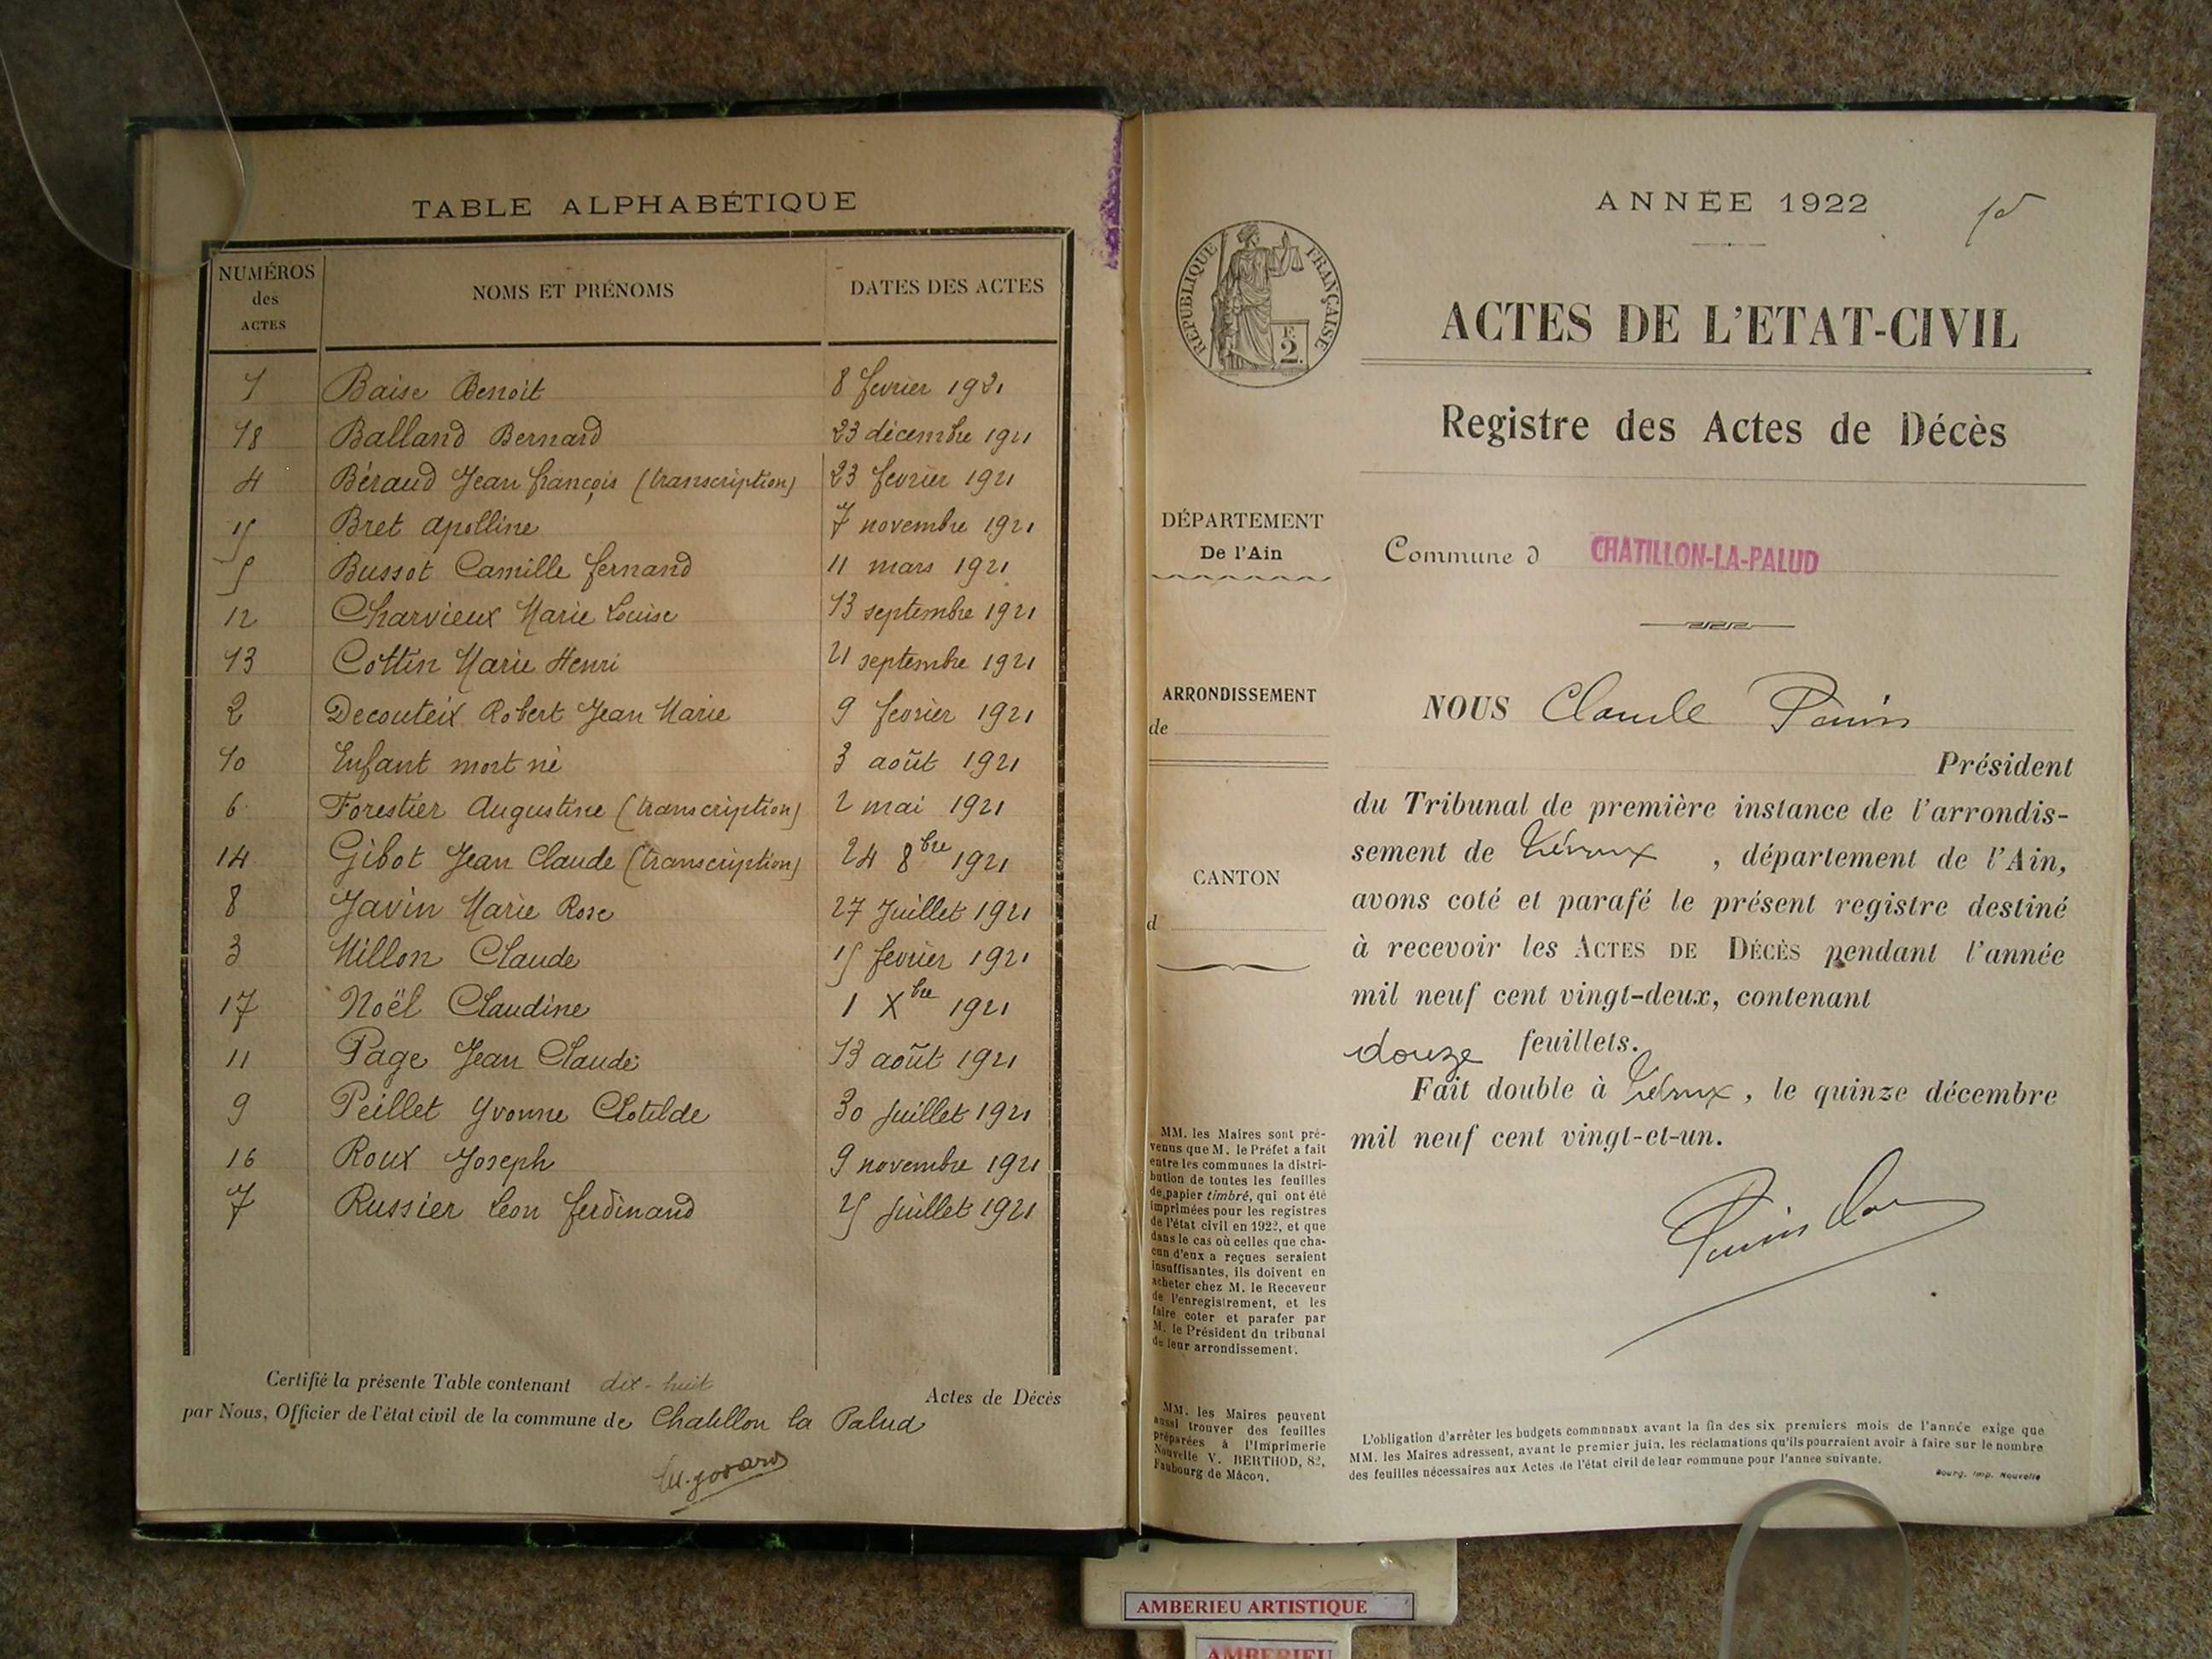 TABLE ALPHABÉTIQUE
NUMÉROS des ACTES NOMS ET PRÉNOMS DATES DES ACTES
1 Baise Benoit 8 fevrier 1921
18 Balland Bernard 23 décembre 1921
4 Béraud Jean françois (transcription) 23 fevrier 1921
15 Bret Apolline 7 novembre 1921
5 Bussot Camille fernand 11 mars 1921
12 Charvieux Marie Louise 13 septembre 1921
13 Cottin Marie Henri 21 septembre 1921
2 Decouteix Robert Jean Marie 9 fevrier 1921
10 Enfant mort né 3 août 1921
6 Forestier Augustine (transcription) 2 mai 1921
14 Gibot Jean Claude (transcription) 24 8bre 1921
8 Javin Marie Rose 27 Juillet 1921
3 Millon Claude 15 fevrier 1921
17 Noël Claudine 1 Xbre 1921
11 Page Jean Claude 13 août 1921
9 Peillet Yvonne Clotilde 30 Juillet 1921
16 Roux Joseph 9 novembre 1921
7 Russier Leon ferdinand 25 Juillet 1921
Certifié la présente Table contenant dix-huit Actes de Décès
par Nous, Officier de l'état civil de la commune de Chatillon la Palud
ANNÉE 1922
RÉPUBLIQUE FRANÇAISE
2
ACTES DE L'ETAT-CIVIL
Registre des Actes de Décès
DÉPARTEMENT
De l'Ain
Commune d CHATILLON-LA-PALUD
ARRONDISSEMENT
de
CANTON
d
NOUS Claude
Président
du Tribunal de première instance de l'arrondis-
sement de Trévoux, département de l'Ain,
avons coté et parafé le présent registre destiné
à recevoir les ACTES DE DÉCÈS pendant l'année
mil neuf cent vingt-deux, contenant
douze feuillets.
Fait double à Trévoux, le quinze décembre
mil neuf cent vingt-et-un.
MM. les Maires sont pré-
venus que M. le Préfet a fait
entre les communes la distri-
bution de toutes les feuilles
de papier timbré, qui ont été
imprimées pour les registres
de l'état civil en 1922, et que
dans le cas où celles que cha-
cun d'eux a reçues seraient
insuffisantes, ils doivent en
acheter chez M. le Receveur
de l'enregistrement, et les
faire coter et parafer par
M. le Président du tribunal
de leur arrondissement.
MM. les Maires peuvent
aussi trouver des feuilles
préparées à l'Imprimerie
Nouvelle V. BERTHOD, 82,
Faubourg de Mâcon.
L'obligation d'arrêter les budgets communaux avant la fin des six premiers mois de l'année exige que
MM. les Maires adressent, avant le premier juin, les réclamations qu'ils pourraient avoir à faire sur le nombre
des feuilles nécessaires aux Actes de l'état civil de leur commune pour l'année suivante.
Bourg, Imp. Nouvelle
AMBERIEU ARTISTIQUE
AMBERIEU